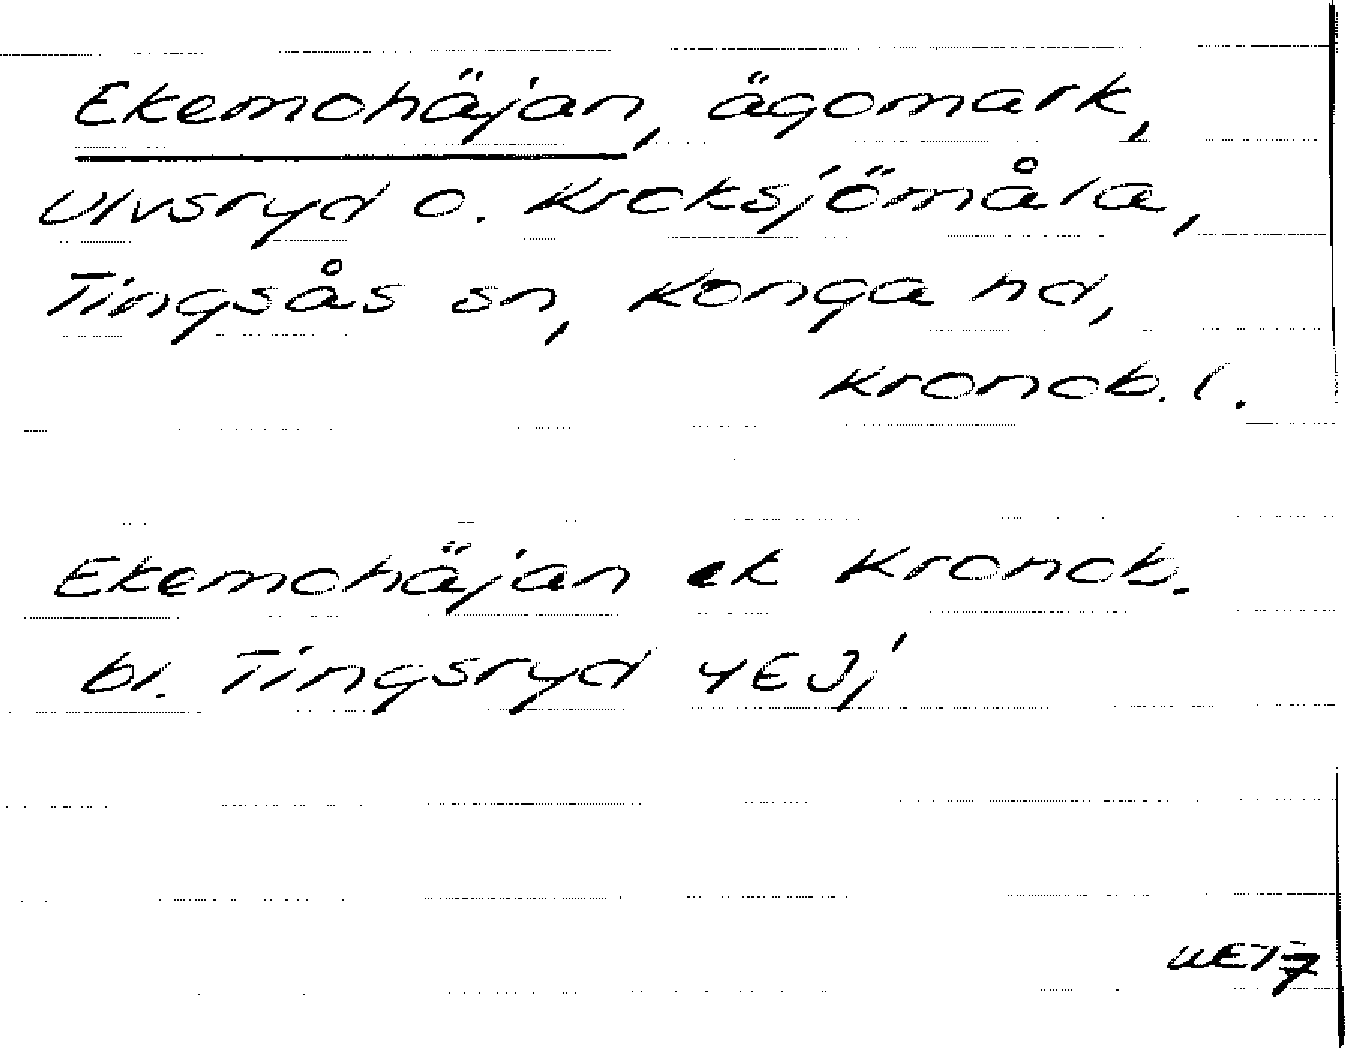 Ekemohäjan, ägomark,
Ulvsryd o. Kroksjömåla,
Tingsås sn, Konga hd,
Kronob. l.
Ekemohäjan ek Kronob.
bl. Tingsryd 4EJj